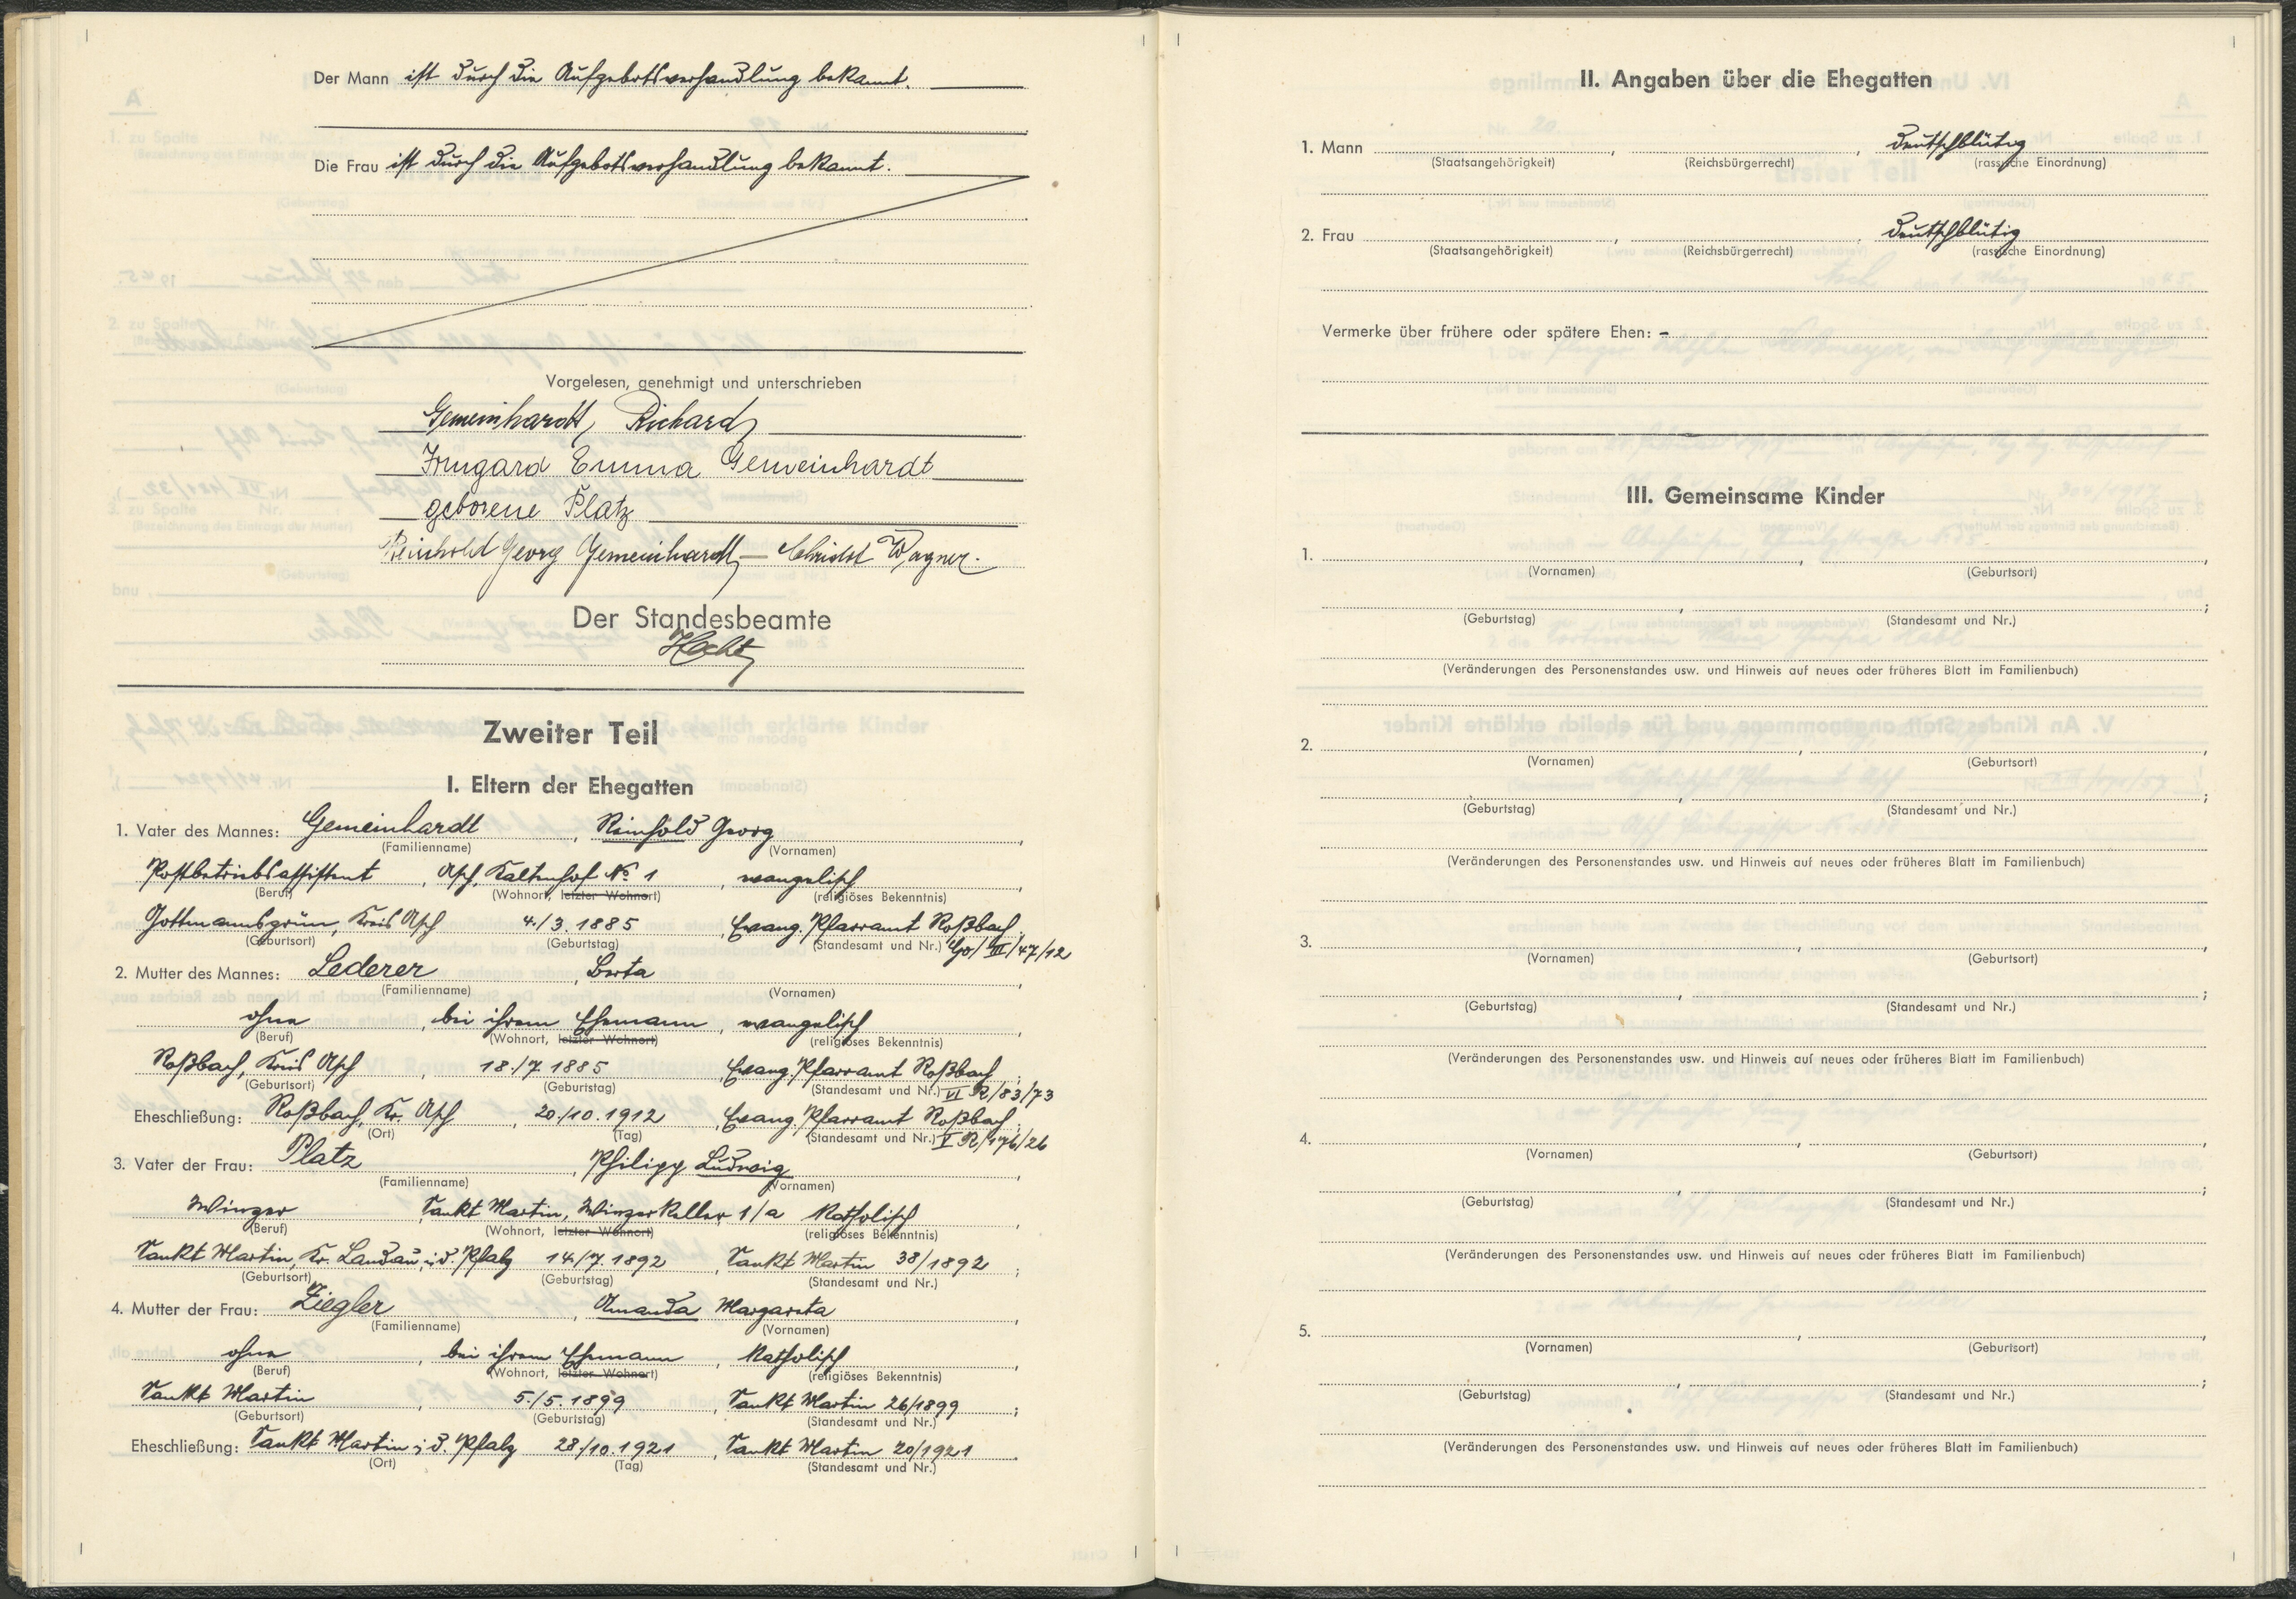 Der Mann ist durch die Aufgebotsverhandlung bekannt.
Die Frau ist durch die Aufgebotsverhandlung bekannt.
Vorgelesen, genehmigt und unterschrieben
Gemeinhardt, Richard
Irmgard Emma Gemeinhardt
geborene Platz
Reinhold Georg Gemeinhardt – Christof Wagner.
Der Standesbeamte
Hecht
Zweiter Teil
I. Eltern der Ehegatten
1. Vater des Mannes: Gemeinhardt, Reinhold Georg,
(Familienname) (Vornamen)
Postbetriebsassistent, Asch, Kaltenhof No. 1, evangelisch,
(Beruf) (Wohnort, letzter Wohnort) (religiöses Bekenntnis)
Gottmannsgrün, Kreis Asch 4./3. 1885, Evang. Pfarramt Roßbach,
(Geburtsort) (Geburtstag) (Standesamt und Nr.) Go/III/47/12
2. Mutter des Mannes: Lederer, Berta,
(Familienname) (Vornamen)
ohne, bei ihrem Ehemann, evangelisch,
(Beruf) (Wohnort, letzter Wohnort) (religiöses Bekenntnis)
Roßbach, Kreis Asch, 18./7. 1885 Evang. Pfarramt Roßbach;
(Geburtsort) (Geburtstag) (Standesamt und Nr.) VI R/83/73
Eheschließung: Roßbach, Kr. Asch, 20./10. 1912, Evang. Pfarramt Roßbach;
(Ort) (Tag) (Standesamt und Nr.) V R/176/26
3. Vater der Frau: Platz, Philipp Ludwig,
(Familienname) (Vornamen)
Winzer, Sankt Martin, Winzerkeller 1/a katholisch,
(Beruf) (Wohnort, letzter Wohnort) (religiöses Bekenntnis)
Sankt Martin, Kr. Landau i. d. Pfalz 14./7. 1892, Sankt Martin 38/1892;
(Geburtsort) (Geburtstag) (Standesamt und Nr.)
4. Mutter der Frau: Ziegler, Amanda Margareta,
(Familienname) (Vornamen)
ohne, bei ihrem Ehemann, katholisch,
(Beruf) (Wohnort, letzter Wohnort) (religiöses Bekenntnis)
Sankt Martin, 5./5. 1899, Sankt Martin 26/1899;
(Geburtsort) (Geburtstag) (Standesamt und Nr.)
Eheschließung: Sankt Martin i. d. Pfalz 28./10. 1921, Sankt Martin 20/1921.
(Ort) (Tag) (Standesamt und Nr.)
II. Angaben über die Ehegatten
1. Mann , , deutschblütig
(Staatsangehörigkeit) (Reichsbürgerrecht) (rassische Einordnung)
2. Frau , , deutschblütig
(Staatsangehörigkeit) (Reichsbürgerrecht) (rassische Einordnung)
Vermerke über frühere oder spätere Ehen: –
III. Gemeinsame Kinder
1. , ,
(Vornamen) (Geburtsort)
, ;
(Geburtstag) (Standesamt und Nr.)
(Veränderungen des Personenstandes usw. und Hinweis auf neues oder früheres Blatt im Familienbuch)
2. , ,
(Vornamen) (Geburtsort)
, ;
(Geburtstag) (Standesamt und Nr.)
(Veränderungen des Personenstandes usw. und Hinweis auf neues oder früheres Blatt im Familienbuch)
3. , ,
(Vornamen) (Geburtsort)
, ;
(Geburtstag) (Standesamt und Nr.)
(Veränderungen des Personenstandes usw. und Hinweis auf neues oder früheres Blatt im Familienbuch)
4. , ,
(Vornamen) (Geburtsort)
, ;
(Geburtstag) (Standesamt und Nr.)
(Veränderungen des Personenstandes usw. und Hinweis auf neues oder früheres Blatt im Familienbuch)
5. , ,
(Vornamen) (Geburtsort)
, ;
(Geburtstag) (Standesamt und Nr.)
(Veränderungen des Personenstandes usw. und Hinweis auf neues oder früheres Blatt im Familienbuch)